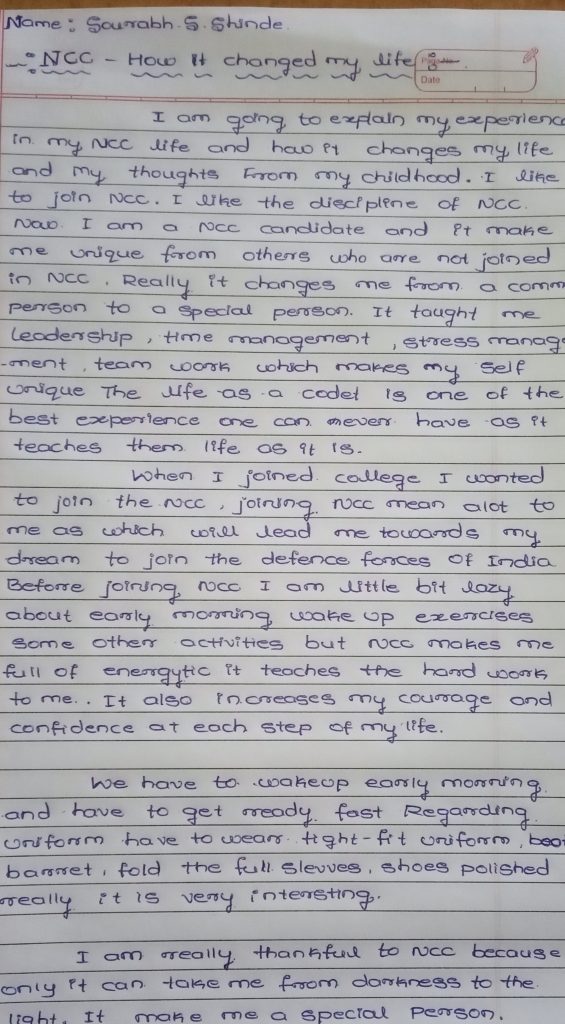 Name: Sourabh.S.Shinde.
-: NCC - How it changed my life
Page No.
Date
I am going to explain my experienc
in my NCC life and how it changes my life
and my thoughts From my childhood. I like
to join NCC. I like the discipline of NCC.
Now I am a NCC candidate and it make
me unique from others who are not joined
in NCC. Really it changes me from a comm
person to a special person. It taught me
Leadership, time management, stress manag
-ment, team work which makes my self
unique The life as a cadet is one of the
best experience one can never have as it
teaches them life as it is.
When I joined college I wanted
to join the NCC, joining NCC mean alot to
me as which will lead me towards my
dream to join the defence forces of India
Before joining NCC I am little bit lazy
about early morning wake up exercises
some other activities but NCC makes me
full of energytic it teaches the hard work
to me.. It also increases my courage and
confidence at each step of my life.
We have to wakeup early morning
and have to get ready fast Regarding
uniform have to wear tight-fit uniform, boo
barret, fold the full slevves, shoes polished
really it is very intersting.
I am really thankful to NCC because
only it can take me from darkness to the
light. It make me a special Person.